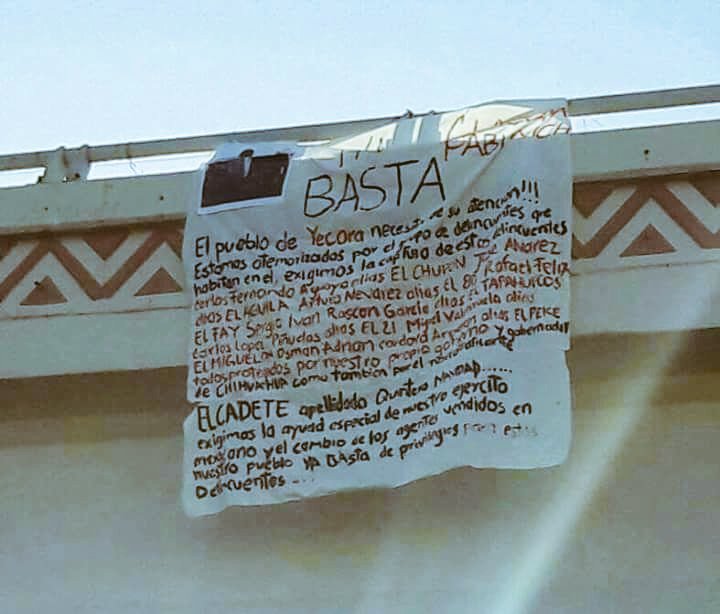 BASTA
El pueblo de Yecora necesita de su atencion!!!
Estamos atemorizados por el grupo de delincuentes que
habitan en el, exigimos la captura de estos delincuentes
carlos Fernando Ayaya alias EL CHUREN Jose Alvarez
alias EL AGUILA Arturo Nevarez alias el 80 Rafael Felix
EL FAY Sergio Ivan Rascon Garcia alias EL TAPAHUECOS
carlos Lopa Piñuelas alias EL 21 Migel Valenzuela alias
EL MIGUELON Osman Adrian cordova alias EL PEKE
todos protegidos por nuestro propio gobierno y gobernador
de CHIHUAHUA como tambien por el narcotraficante
EL CADETE apellidado Quintero NAVIDAD......
exigimos la ayuda especial de nuestro ejercito
mexicano y el cambio de los agentes vendidos en
nuestro pueblo YA BASTA de privilegios para estos
Delincuentes...